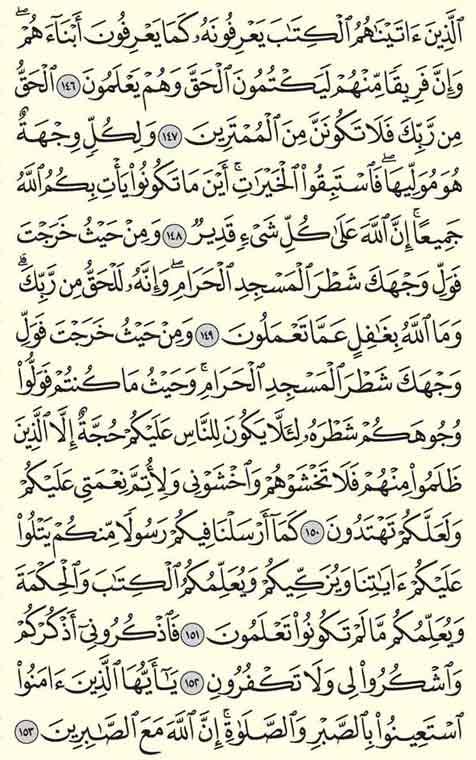 ٱلَّذِينَ ءَاتَيۡنَٰهُمُ ٱلۡكِتَٰبَ يَعۡرِفُونَهُۥ كَمَا يَعۡرِفُونَ أَبۡنَآءَهُمۡۖ
وَإِنَّ فَرِيقٗا مِّنۡهُمۡ لَيَكۡتُمُونَ ٱلۡحَقَّ وَهُمۡ يَعۡلَمُونَ ١٤٦ ٱلۡحَقُّ
مِن رَّبِّكَ فَلَا تَكُونَنَّ مِنَ ٱلۡمُمۡتَرِينَ ١٤٧ وَلِكُلّٖ وِجۡهَةٌ
هُوَ مُوَلِّيهَاۖ فَٱسۡتَبِقُواْ ٱلۡخَيۡرَٰتِۚ أَيۡنَ مَا تَكُونُواْ يَأۡتِ بِكُمُ ٱللَّهُ
جَمِيعًاۚ إِنَّ ٱللَّهَ عَلَىٰ كُلِّ شَيۡءٖ قَدِيرٞ ١٤٨ وَمِنۡ حَيۡثُ خَرَجۡتَ
فَوَلِّ وَجۡهَكَ شَطۡرَ ٱلۡمَسۡجِدِ ٱلۡحَرَامِۖ وَإِنَّهُۥ لَلۡحَقُّ مِن رَّبِّكَۗ
وَمَا ٱللَّهُ بِغَٰفِلٍ عَمَّا تَعۡمَلُونَ ١٤٩ وَمِنۡ حَيۡثُ خَرَجۡتَ فَوَلِّ
وَجۡهَكَ شَطۡرَ ٱلۡمَسۡجِدِ ٱلۡحَرَامِۚ وَحَيۡثُ مَا كُنتُمۡ فَوَلُّواْ
وُجُوهَكُمۡ شَطۡرَهُۥ لِئَلَّا يَكُونَ لِلنَّاسِ عَلَيۡكُمۡ حُجَّةٌ إِلَّا ٱلَّذِينَ
ظَلَمُواْ مِنۡهُمۡ فَلَا تَخۡشَوۡهُمۡ وَٱخۡشَوۡنِي وَلِأُتِمَّ نِعۡمَتِي عَلَيۡكُمۡ
وَلَعَلَّكُمۡ تَهۡتَدُونَ ١٥٠ كَمَآ أَرۡسَلۡنَا فِيكُمۡ رَسُولٗا مِّنكُمۡ يَتۡلُواْ
عَلَيۡكُمۡ ءَايَٰتِنَا وَيُزَكِّيكُمۡ وَيُعَلِّمُكُمُ ٱلۡكِتَٰبَ وَٱلۡحِكۡمَةَ
وَيُعَلِّمُكُم مَّا لَمۡ تَكُونُواْ تَعۡلَمُونَ ١٥١ فَٱذۡكُرُونِيٓ أَذۡكُرۡكُمۡ
وَٱشۡكُرُواْ لِي وَلَا تَكۡفُرُونِ ١٥٢ يَٰٓأَيُّهَا ٱلَّذِينَ ءَامَنُواْ
ٱسۡتَعِينُواْ بِٱلصَّبۡرِ وَٱلصَّلَوٰةِۚ إِنَّ ٱللَّهَ مَعَ ٱلصَّٰبِرِينَ ١٥٣